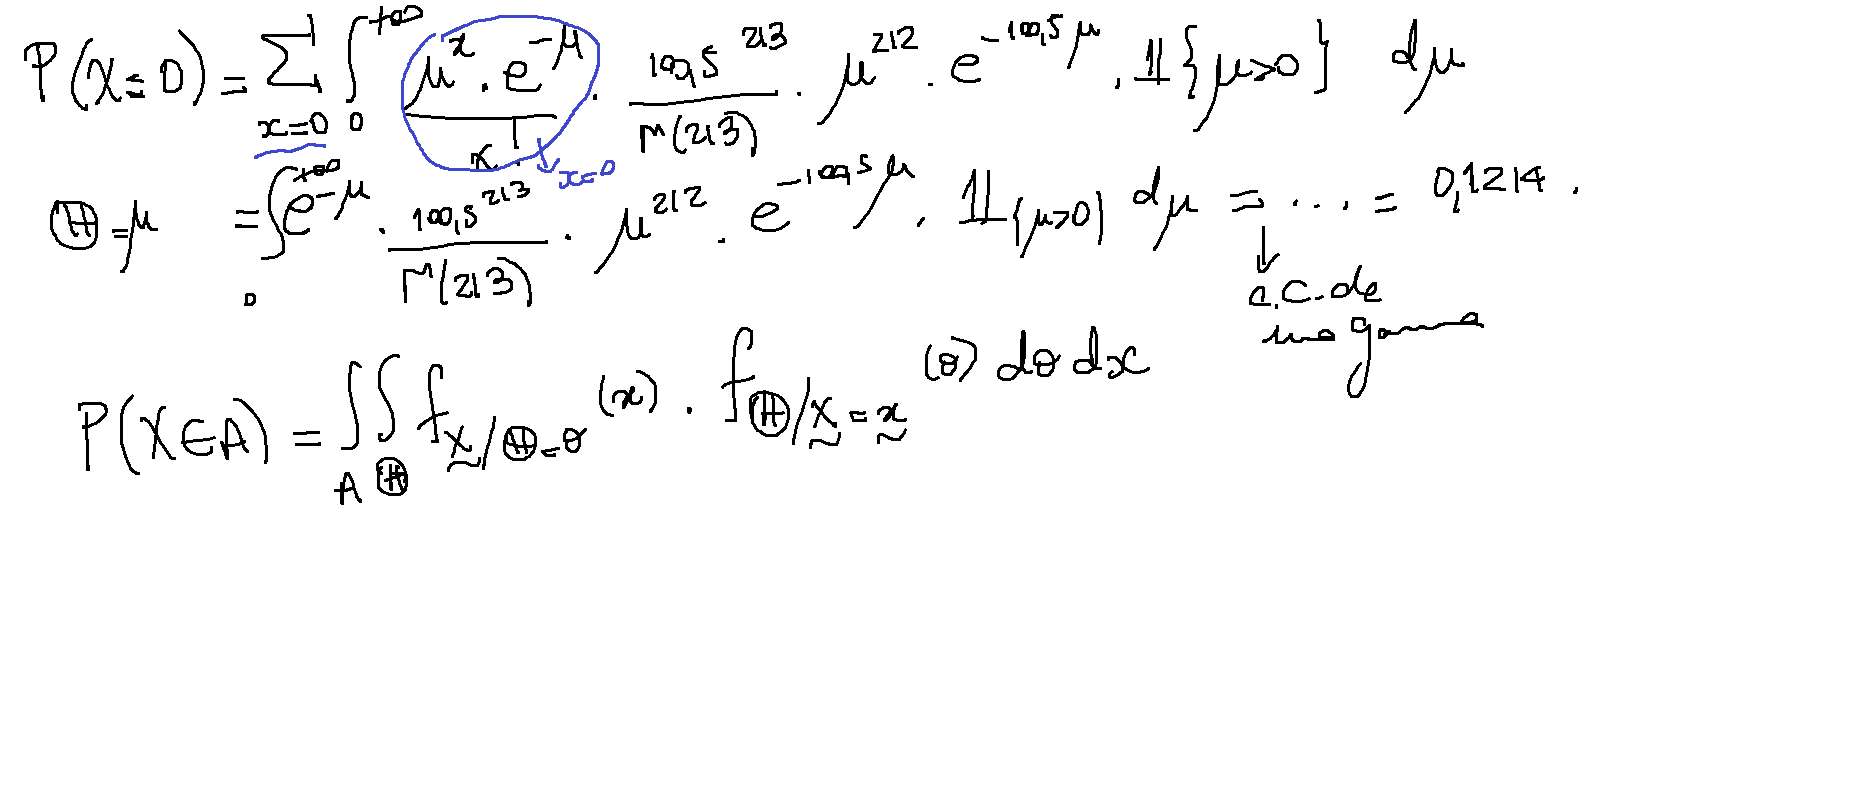 P(X=0) = ∑_{x=0} ∫_0^{+∞} (μ^x · e^{-μ})/x! · 100,5^{213}/Γ(213) · μ^{212} · e^{-100,5μ} · 𝟙{μ>0} dμ
→ x=0
Ⓗ=μ = ∫_0^{+∞} e^{-μ} · 100,5^{213}/Γ(213) · μ^{212} · e^{-100,5μ} · 𝟙_{μ>0} dμ = ... = 0,1214.
↓
c.c. de
una gamma
P(X∈A) = ∫_A ∫_Ⓗ f_{X/Ⓗ=θ}(x) · f_{Ⓗ/X=x}(θ) dθ dx